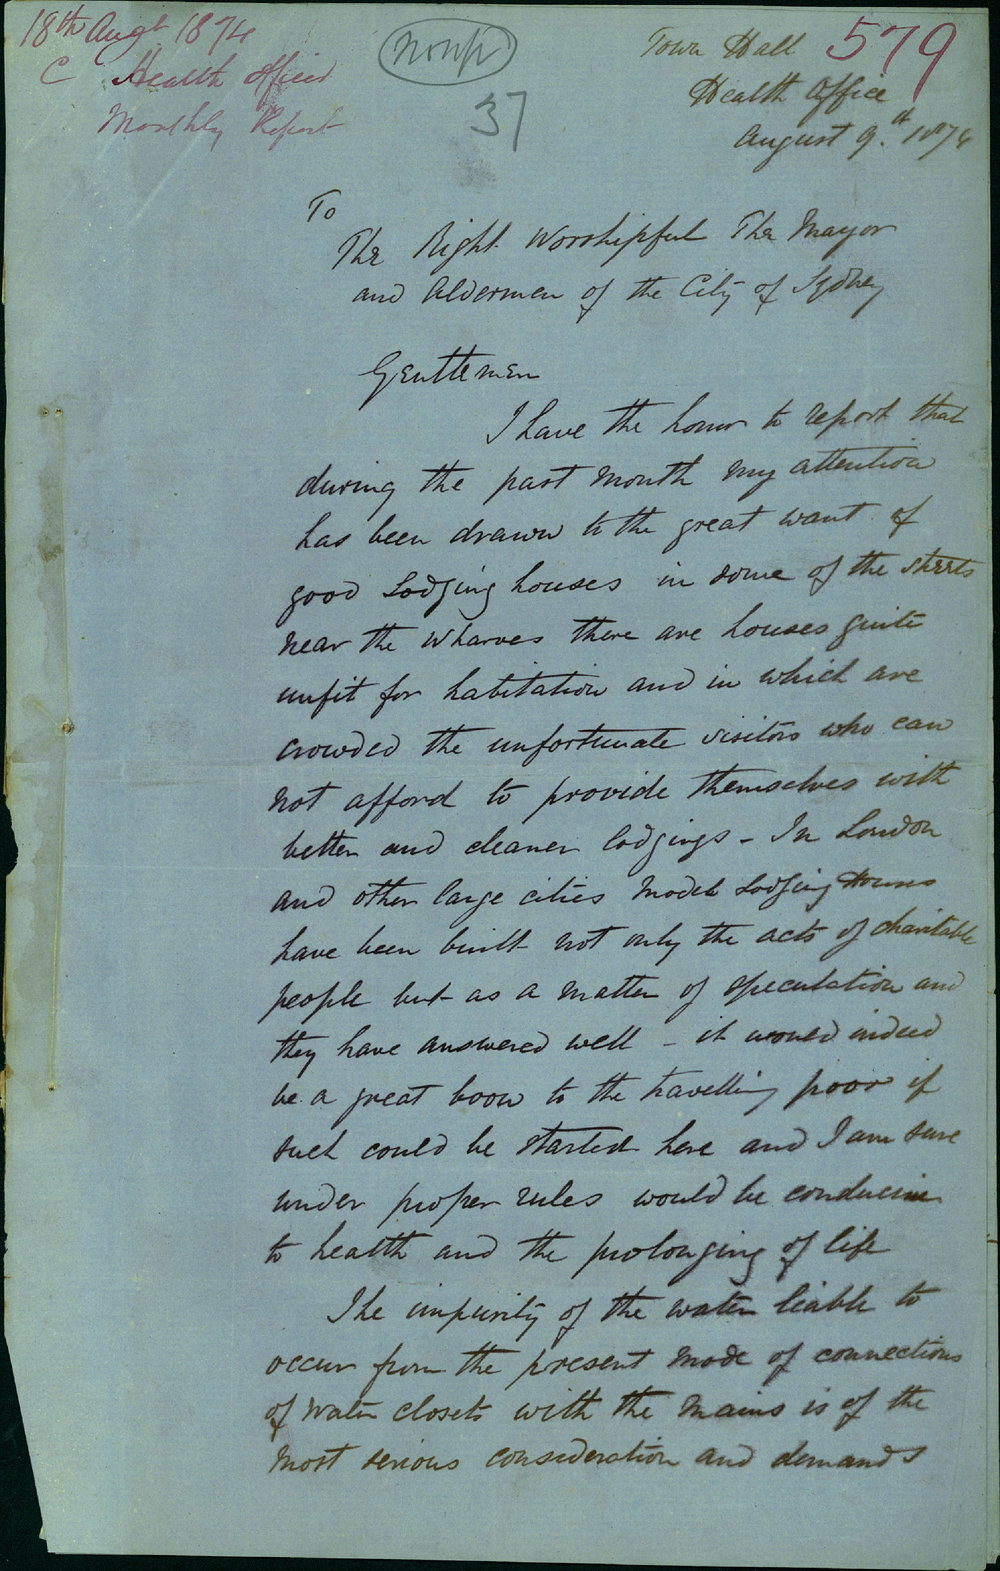 18th Augt 1874
C Health Officer
Monthly Report
37
579
Town Hall
Health Office
August 9.th 1874
To
The Right Worshipful The Mayor
and Aldermen of the City of Sydney
Gentlemen
I have the honor to report that
during the past month my attention
has been drawn to the great want of
good Lodging houses in some of the streets
near the Wharves there are houses quite
unfit for habitation and in which are
crowded the unfortunate visitors who can
not afford to provide themselves with
better and cleaner lodgings - In London
and other large cities Model Lodging Houses
have been built not only the acts of charitable
people but as a matter of speculation and
they have answered well - it would indeed
be a great boon to the travelling poor if
such could be started here and I am sure
under proper rules would be conducive
to health and the prolonging of life
The impurity of the water liable to
occur from the present mode of connections
of water closets with the mains is of the
most serious consideration and demands